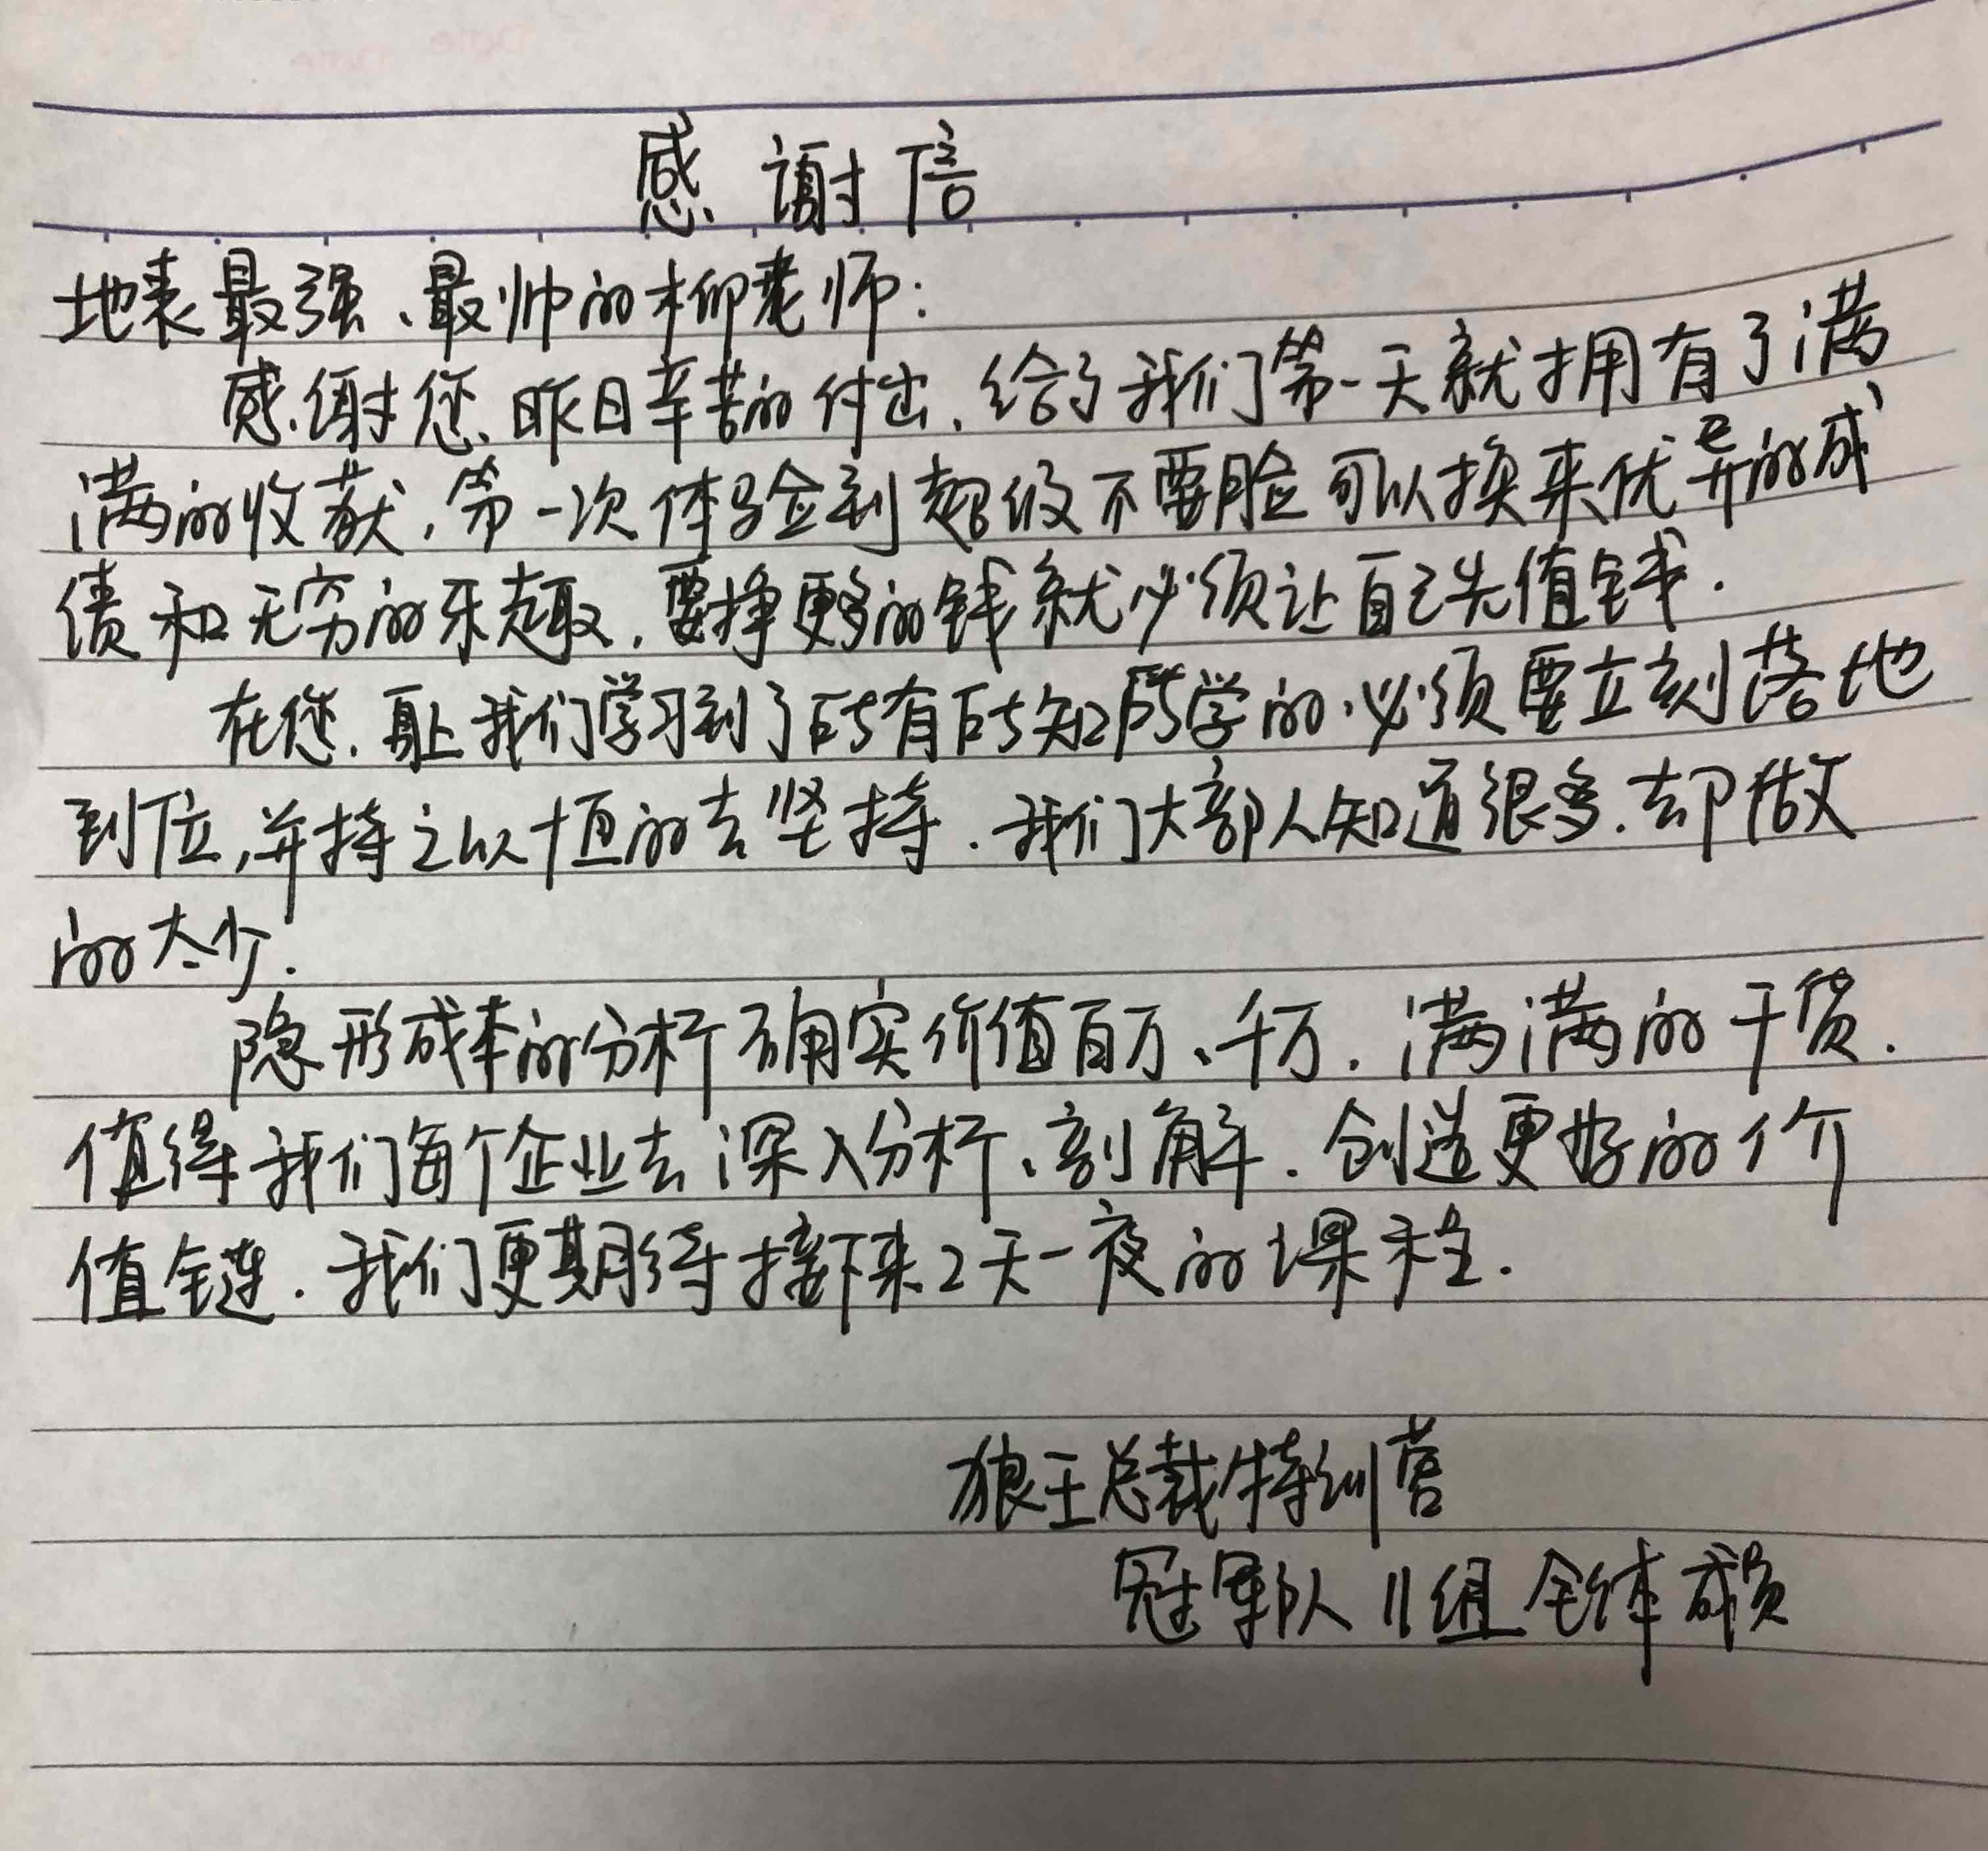 感谢信
地表最强、最帅的柳老师:
感谢您昨日辛苦的付出,给了我们第一天就拥有了满
满的收获,第一次体验到超级不要脸可以换来优异的成
绩和无穷的乐趣,要挣更多的钱就必须让自己先值钱.
在您身上我们学习到了所有所知所学的,必须要立刻落地
到位,并持之以恒的去坚持.我们大部人知道很多.却做
的太少.
隐形成本的分析确实价值百万、千万.满满的干货.
值得我们每个企业去深入分析、剖解.创造更好的价
值链.我们更期待接下来2天一夜的课程.
狼王总裁特训营
冠军队11组全体成员